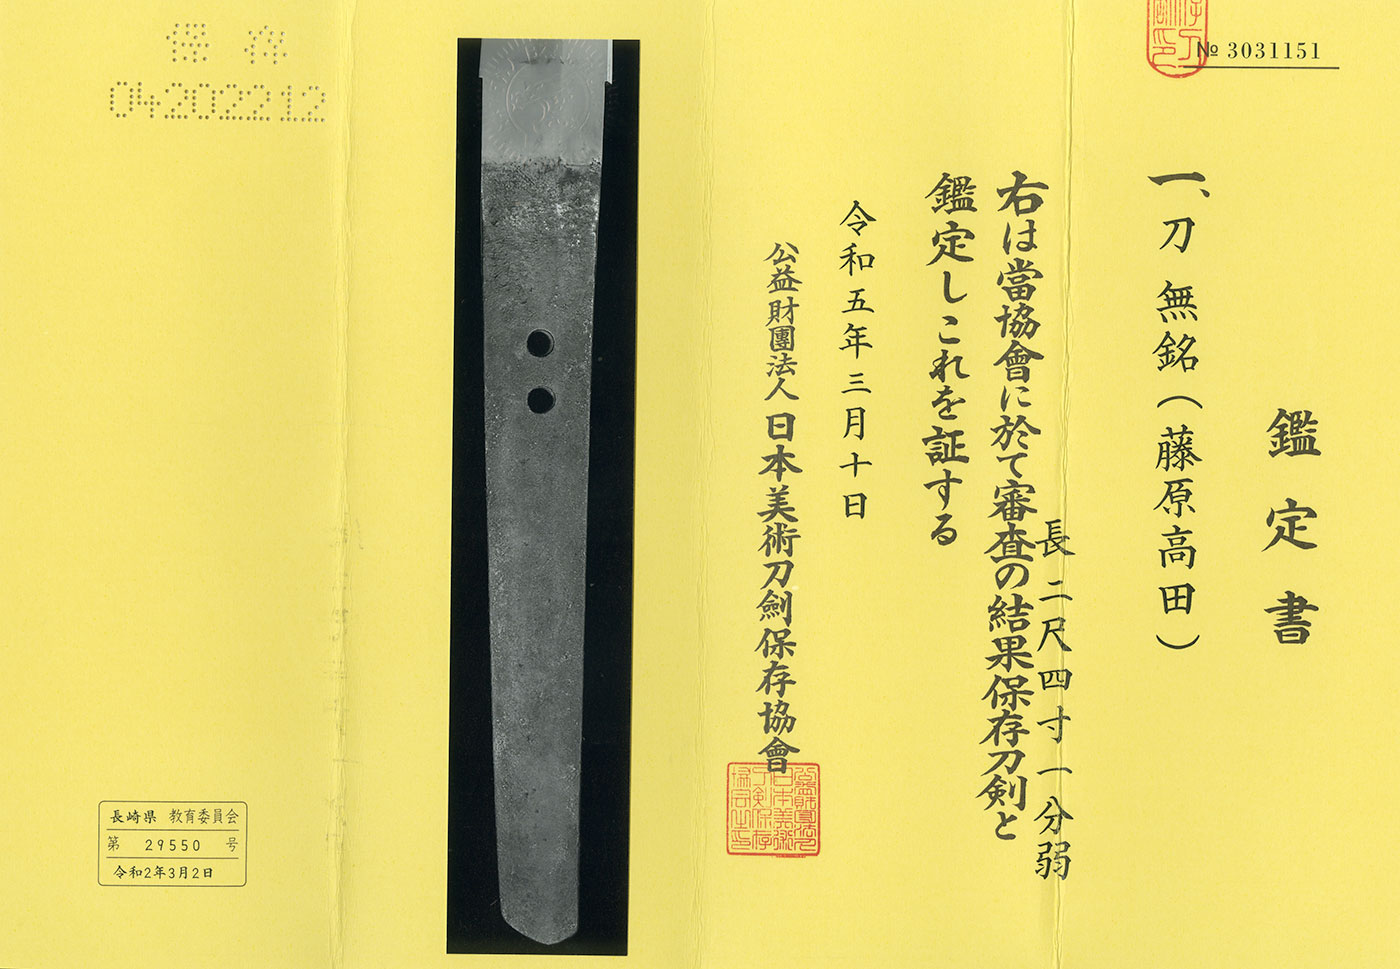 № 3031151
鑑定書
一、刀 無銘(藤原高田)
長二尺四寸一分弱
右は當協會に於て審査の結果保存刀剣と
鑑定しこれを証する
令和五年三月十日
公益財團法人 日本美術刀劍保存協會
保存
04202212
長崎県 教育委員会
第 29550 号
令和2年3月2日